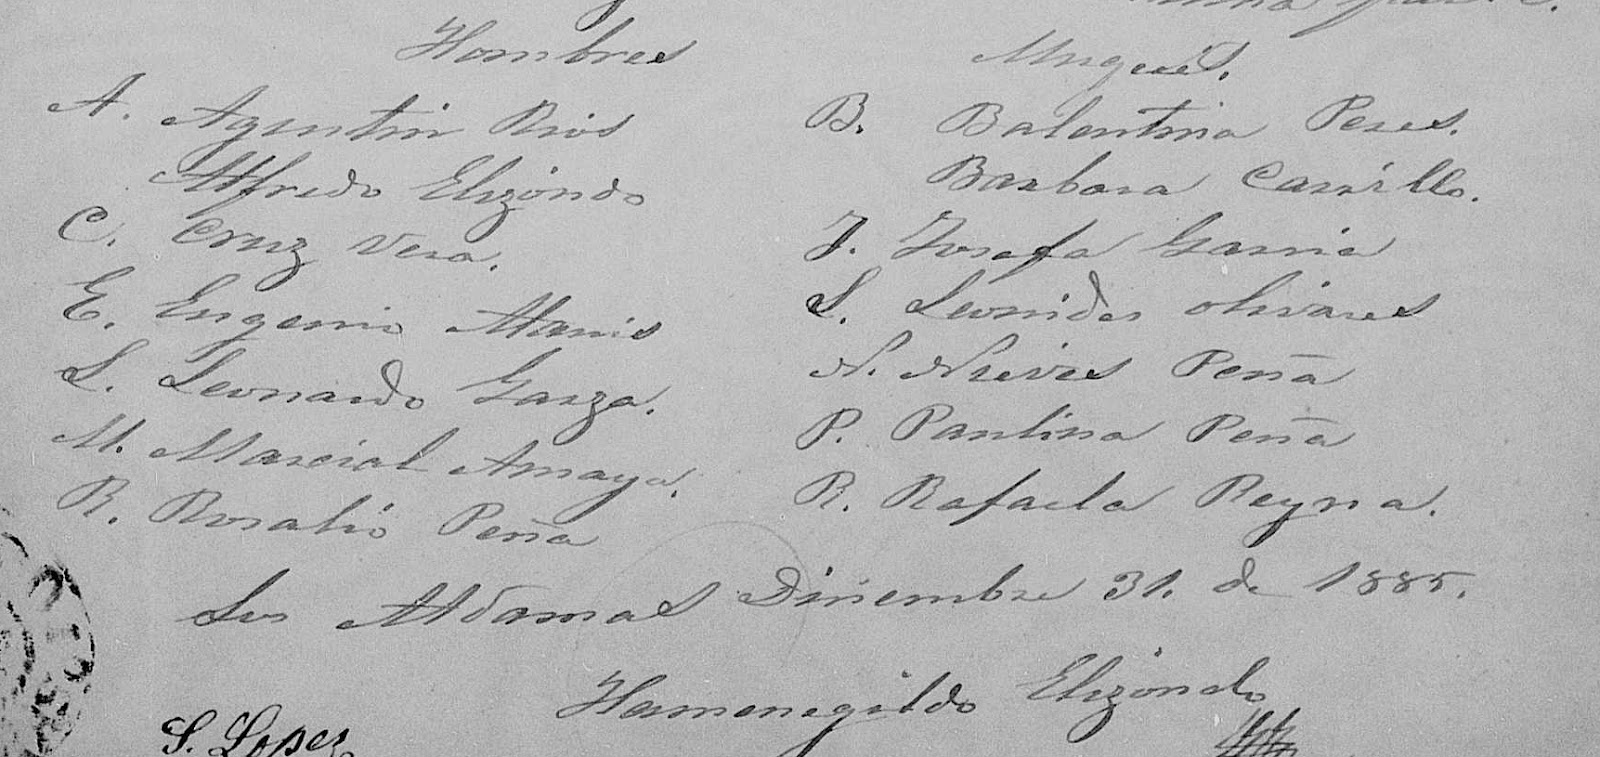 Hombres
A. Agustin Rios
Alfredo Elizondo
C. Cruz Vera.
E. Eugenio Alanis
L. Leonardo Garza.
M. Marcial Amaya.
R. Rosalio Peña
Mugeres.
B. Balentina Peres.
Barbara Carrillo.
J. Josefa Garcia
L. Leonides Olivares
N. Nieves Peña
P. Paulina Peña
R. Rafaela Reyna.
Los Aldamas Diciembre 31. de 1885.
Hermenegildo Elizondo
S. Lopez